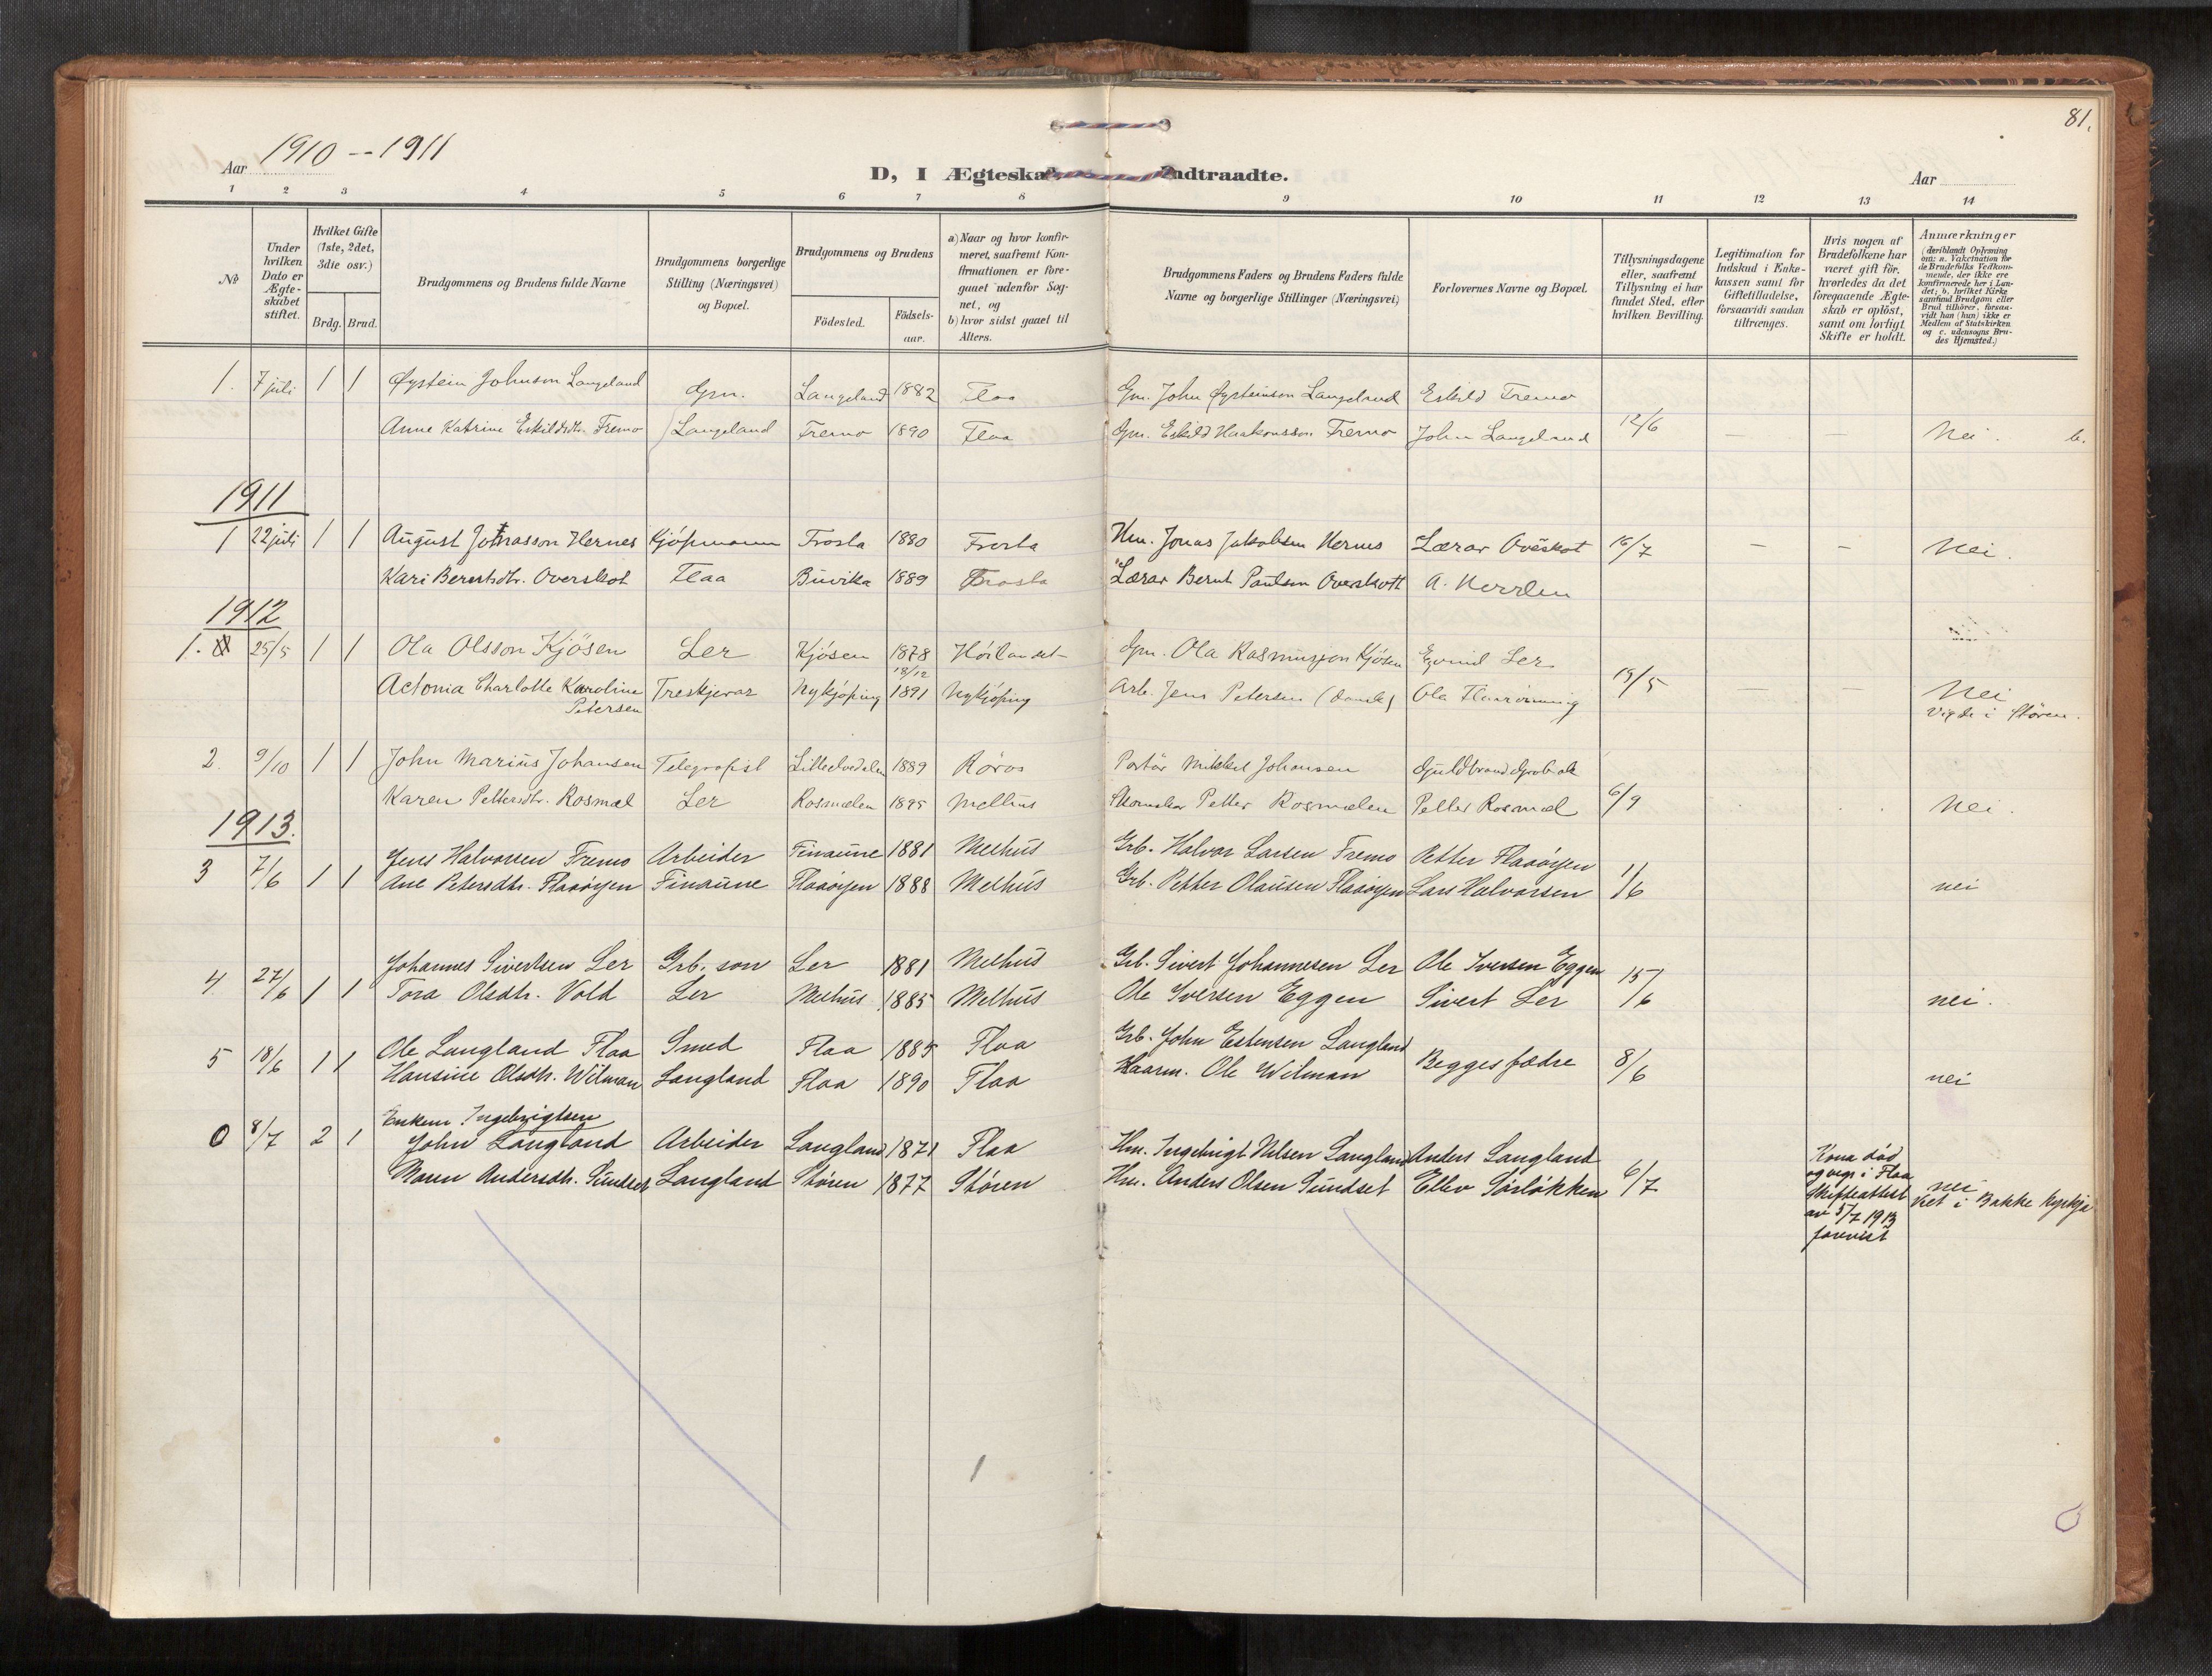 81.
Aar 1910 -- 1911
D, I Ægteskab Indtraadte.
Aar
1 2 3 4 5 6 7 8 9 10 11 12 13 14
No
Under hvilken Dato er Ægteskabet stiftet.
Hvilket Gifte (1ste, 2det, 3die osv.)
Brdg. Brud.
Brudgommens og Brudens fulde Navne
Brudgommens borgerlige Stilling (Næringsvei) og Bopæl.
Brudgommens og Brudens
Födested. Födsels-aar.
a) Naar og hvor konfirmeret, saafremt Konfirmationen er foregaaet udenfor Sognet, og
b) hvor sidst gaaet til Alters.
Brudgommens Faders og Brudens Faders fulde Navne og borgerlige Stillinger (Næringsvei)
Forlovernes Navne og Bopæl.
Tillysningsdagene eller, saafremt Tillysning ei har fundet Sted, efter hvilken Bevilling.
Legitimation for Indskud i Enkekassen samt for Giftetilladelse, forsaavidt saadan tiltrænges.
Hvis nogen af Brudefolkene har været gift för, hvorledes da det foregaaende Ægteskab er oplöst, samt om lovligt Skifte er holdt.
Anmærkninger
(deriblandt Oplysning om: a. Vakcination for de Brudefolks Vedkommende, der ikke ere konfirmerede her i Landet; b. hvilket Kirkesamfund Brudgom eller Brud tilhörer, forsaavidt han (hun) ikke er Medlem af Statskirken og c. udensogns Brudes Hjemsted.)
1. 7 juli 1 1 Øystein Johnson Langeland Gm. Langeland 1882 Flaa Gm. John Øysteinson Langeland Eskild Fremo
Anne Katrine Eskildsdtr. Fremo Langeland Fremo 1890 Flaa Gm. Eskild Haakonsson Fremo John Langeland 12/6 — — Nei. b.
1911
1 22 juli 1 1 August Jonasson Hernes Kjöpmann Frosta 1880 Frosta Hm. Jonas Jakobsen Hernes Lærar Overskot 16/7 — — Nei.
Kari Berntsdtr. Overskot Flaa Buvika 1889 Frosta Lærar Bernt Paulsen Overskott A.
1912
1. 25/5 1 1 Ola Olsson Kjösen Ler Kjösen 1878 Höilandet Gm. Ola Rasmusson Kjösen Eyvind Ler
Actonia Charlotte Karoline Treskjerar Nykjöping 18/12 1891 Nykjöping Arb. Jens Petersen (dansk) Ola 19/5 — — Nei
Petersen Vigde i Stören.
2. 9/10 1 1 John Marius Johansen Telegrafist Lilleelvedalen 1889 Röros Portör Mikkel Johansen Guldbrand
Karen Pettersdtr. Rosmæl Ler Rosmælen 1895 Melhus Petter Rosmælen Petter Rosmæl 6/9 Nei.
1913.
3 7/6 1 1 Jens Halvorsen Fremo Arbeider Finaune 1881 Melhus Grb. Halvor Larsen Fremo Petter Flaaöyen 1/6
Ane Petersdtr. Flaaöyen Finaune Flaaöyen 1888 Melhus Grb. Petter Olausen Flaaöyen Lars Halvorsen nei
4 27/6 1 1 Johannes Sivertsen Ler Grb. son Ler 1881 Melhus Grb. Sivert Johannesen Ler Ole Iversen Eggen 15/6
Tora Olsdtr. Vold Ler Melhus 1885 Melhus Ole Iversen Eggen Sivert Ler nei.
5 18/6 1 1 Ole Langland Flaa Smed Flaa 1885 Flaa Grb. John Estensen Langland Begges fædre 8/6
Hansine Olsdtr. Wilman Langland Flaa 1890 Flaa Haarm. Ole Wilman nei
Enkem. Ingebrigtsen
0 8/7 2 1 John Langland Arbeider Langland 1871 Flaa Hm. Ingebrigt Nilsen Langland Anders Langland
Maren Andersdtr. Sundset Langland Stören 1877 Stören Hm. Anders Olsen Sundset Ellev Sörlökken 6/7
Kona död
og begr. i Flaa
Skifteattest
av 5/7 1913
forevist
nei
Viet i Bakke kyrkja
1